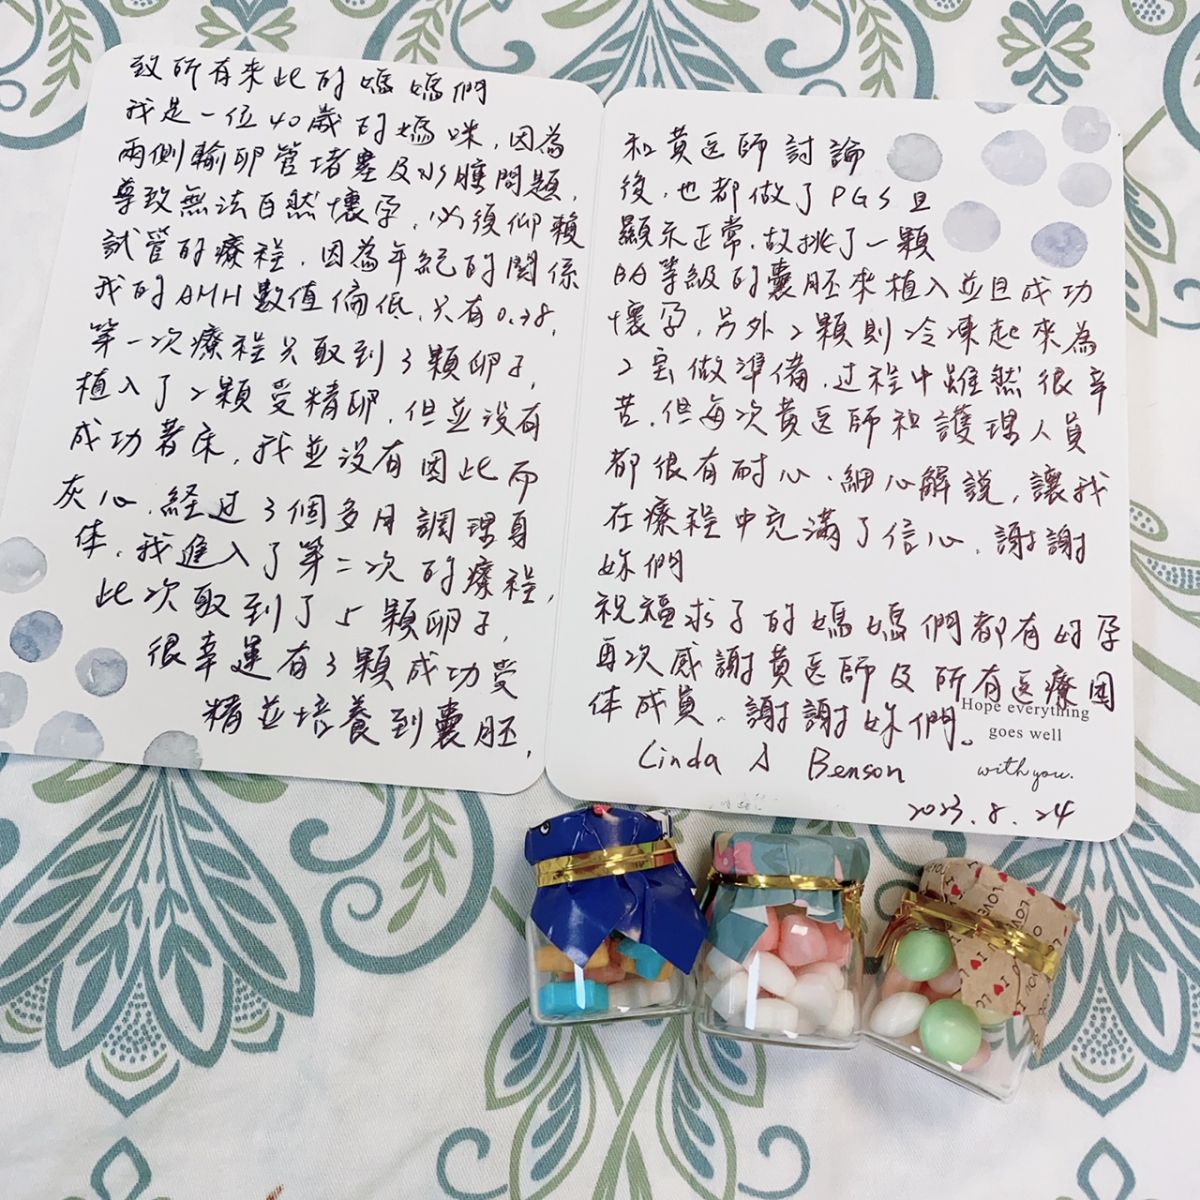 致所有来此的媽媽們
我是一位40歲的媽咪，因為
兩側輸卵管堵塞及水腫問題，
導致無法自然懷孕，必須仰賴
試管的療程，因為年紀的関係
我的AMH數值偏低，只有0.38，
第一次療程只取到3顆卵子，
植入了2顆受精卵，但並沒有
成功著床，我並沒有因此而
灰心，経过3個多月調理身
体，我進入了第二次的療程，
此次取到了5顆卵子，
很幸運有3顆成功受
精並培養到囊胚，
和黃医師討論
後，也都做了PGS且
顯示正常，故挑了一顆
BA等級的囊胚來植入並且成功
懷孕，另外2顆則冷凍起來為
2宝做準備，过程中雖然很辛
苦，但每次黃医師和護理人員
都很有耐心、細心解説，讓我
在療程中充滿了信心，謝謝
妳們
祝福求子的媽媽們都有好孕
再次感謝黃医師及所有医療团
体成員，謝謝妳們。
Linda & Benson
2023.8.24
Hope everything
goes well
with you.
I LOVE YOU